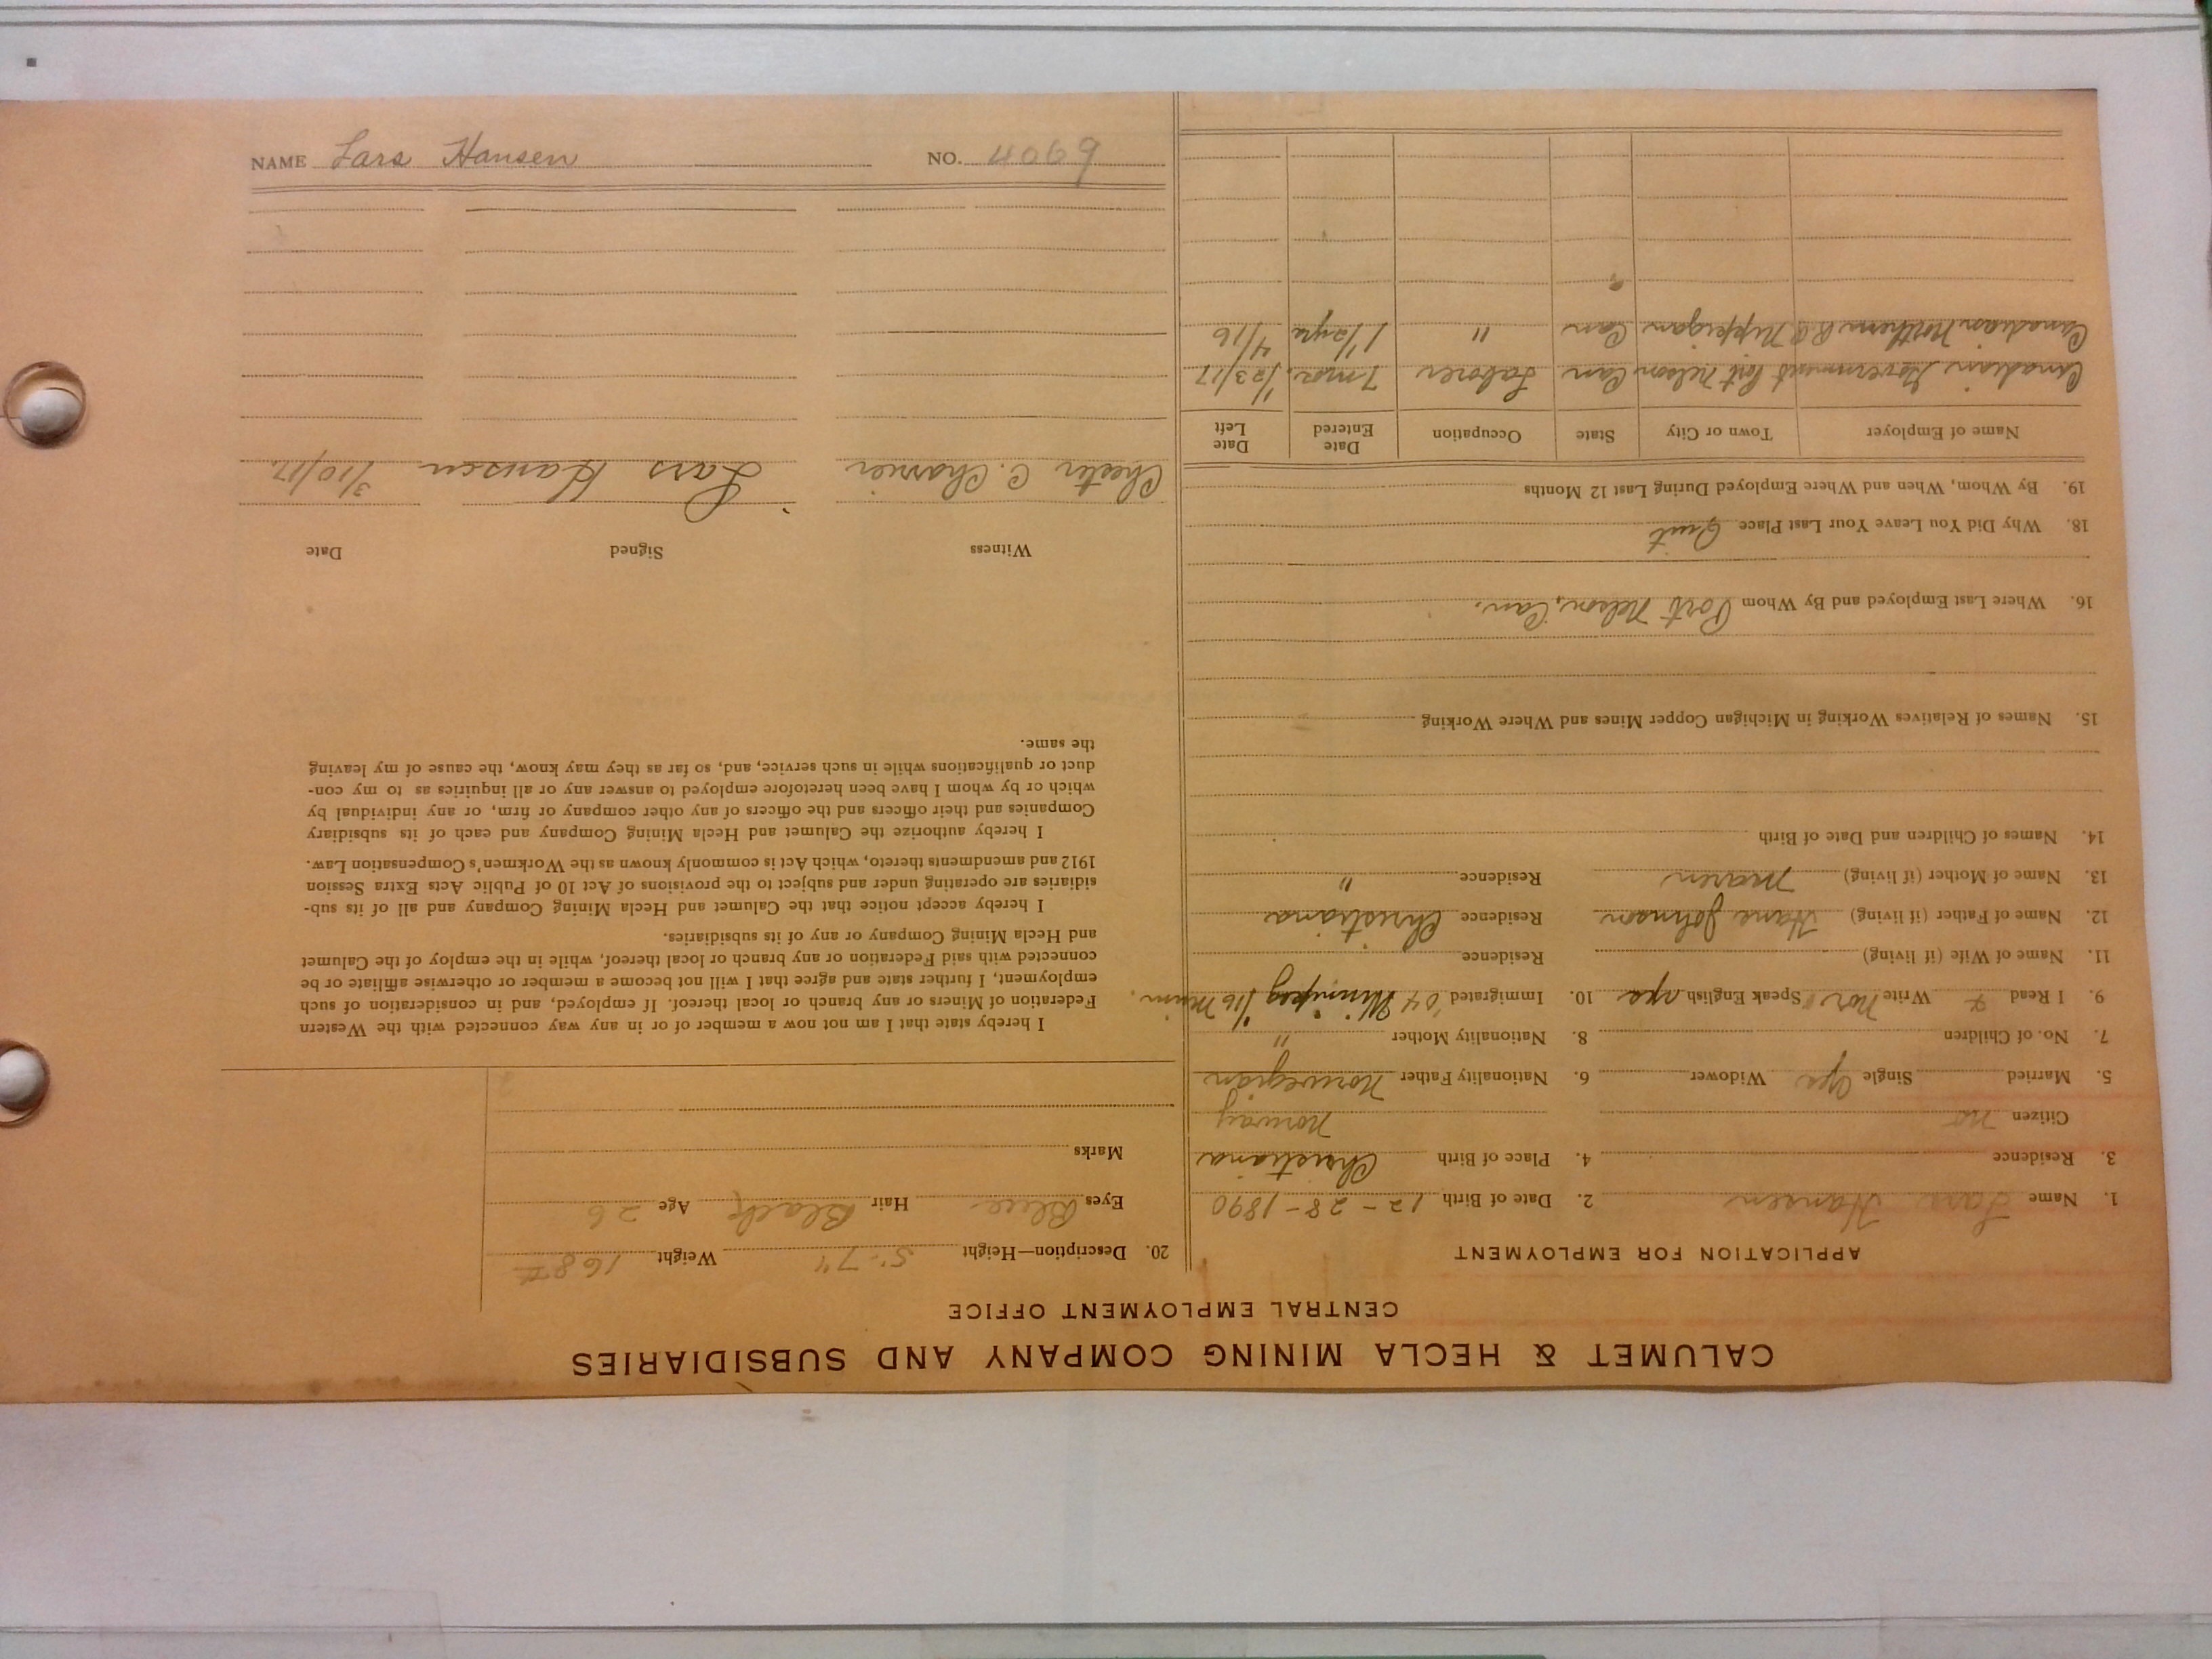 CALUMET & HECLA MINING COMPANY AND SUBSIDIARIES
CENTRAL EMPLOYMENT OFFICE
APPLICATION FOR EMPLOYMENT
1. Name Lars Hansen 2. Date of Birth 12 - 28 - 1890
3. Residence 4. Place of Birth Christiana
Citizen no Norway
5. Married Single yes Widower 6. Nationality Father Norwegian
7. No. of Children 8. Nationality Mother "
9. I Read & Write Nor Speak English yes 10. Immigrated '04 Winnipeg 1/16 Minn.
11. Name of Wife (if living) Residence
12. Name of Father (if living) Hans Johnson Residence Christiana
13. Name of Mother (if living) Maren Residence "
14. Names of Children and Date of Birth
15. Names of Relatives Working in Michigan Copper Mines and Where Working
16. Where Last Employed and By Whom Port Nelson, Can.
18. Why Did You Leave Your Last Place Quit
19. By Whom, When and Where Employed During Last 12 Months
Name of Employer Town or City State Occupation Date Entered Date Left
Canadian Government Port Nelson Can Laborer 7 mos. 1/23/17
Canadian Northern R R Nippigan Can " 1 1/2 yrs 4/16
20. Description—Height 5'-7" Weight 168 #
Eyes Blue Hair Black Age 26
Marks
I hereby state that I am not now a member of or in any way connected with the Western
Federation of Miners or any branch or local thereof. If employed, and in consideration of such
employment, I further state and agree that I will not become a member or otherwise affiliate or be
connected with said Federation or any branch or local thereof, while in the employ of the Calumet
and Hecla Mining Company or any of its subsidiaries.
I hereby accept notice that the Calumet and Hecla Mining Company and all of its sub-
sidiaries are operating under and subject to the provisions of Act 10 of Public Acts Extra Session
1912 and amendments thereto, which Act is commonly known as the Workmen's Compensation Law.
I hereby authorize the Calumet and Hecla Mining Company and each of its subsidiary
Companies and their officers and the officers of any other company or firm, or any individual by
which or by whom I have been heretofore employed to answer any or all inquiries as to my con-
duct or qualifications while in such service, and, so far as they may know, the cause of my leaving
the same.
Witness Signed Date
Chester C. Charrier Lars Hansen 3/10/17.
NAME Lars Hansen NO. 4069